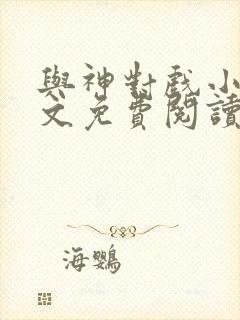 與神對戲小
文免費閱讀
海鸚